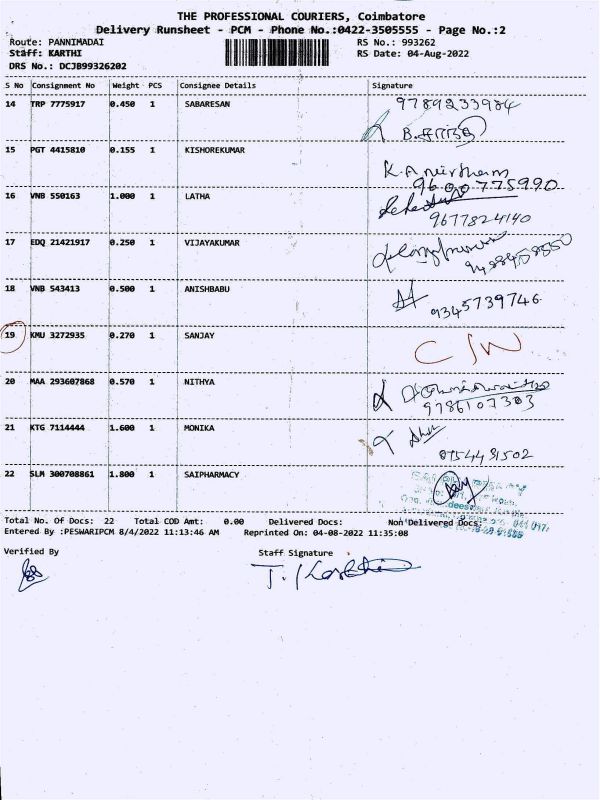 THE PROFESSIONAL COURIERS, Coimbatore
Delivery Runsheet - PCM - Phone No.:0422-3505555 - Page No.:2
Route: PANNIMADAI RS No.: 993262
Staff: KARTHI RS Date: 04-Aug-2022
DRS No.: DCJB99326202
S No Consignment No Weight PCS Consignee Details Signature
14 TRP 7775917 0.450 1 SABARESAN 9789233984
15 PGT 4415810 0.155 1 KISHOREKUMAR
16 VNB 550163 1.000 1 LATHA 9600775990
9677824140
17 EDQ 21421917 0.250 1 VIJAYAKUMAR
18 VNB 543413 0.500 1 ANISHBABU 9345739746
19 KMU 3272935 0.270 1 SANJAY C/W
20 MAA 293607868 0.570 1 NITHYA
9786107303
21 KTG 7114444 1.600 1 MONIKA
8754491502
22 SLM 300708861 1.800 1 SAIPHARMACY
Total No. Of Docs: 22 Total COD Amt: 0.00 Delivered Docs: Non Delivered Docs:
Entered By :PESWARIPCM 8/4/2022 11:13:46 AM Reprinted On: 04-08-2022 11:35:08
Verified By Staff Signature
T. Karthi